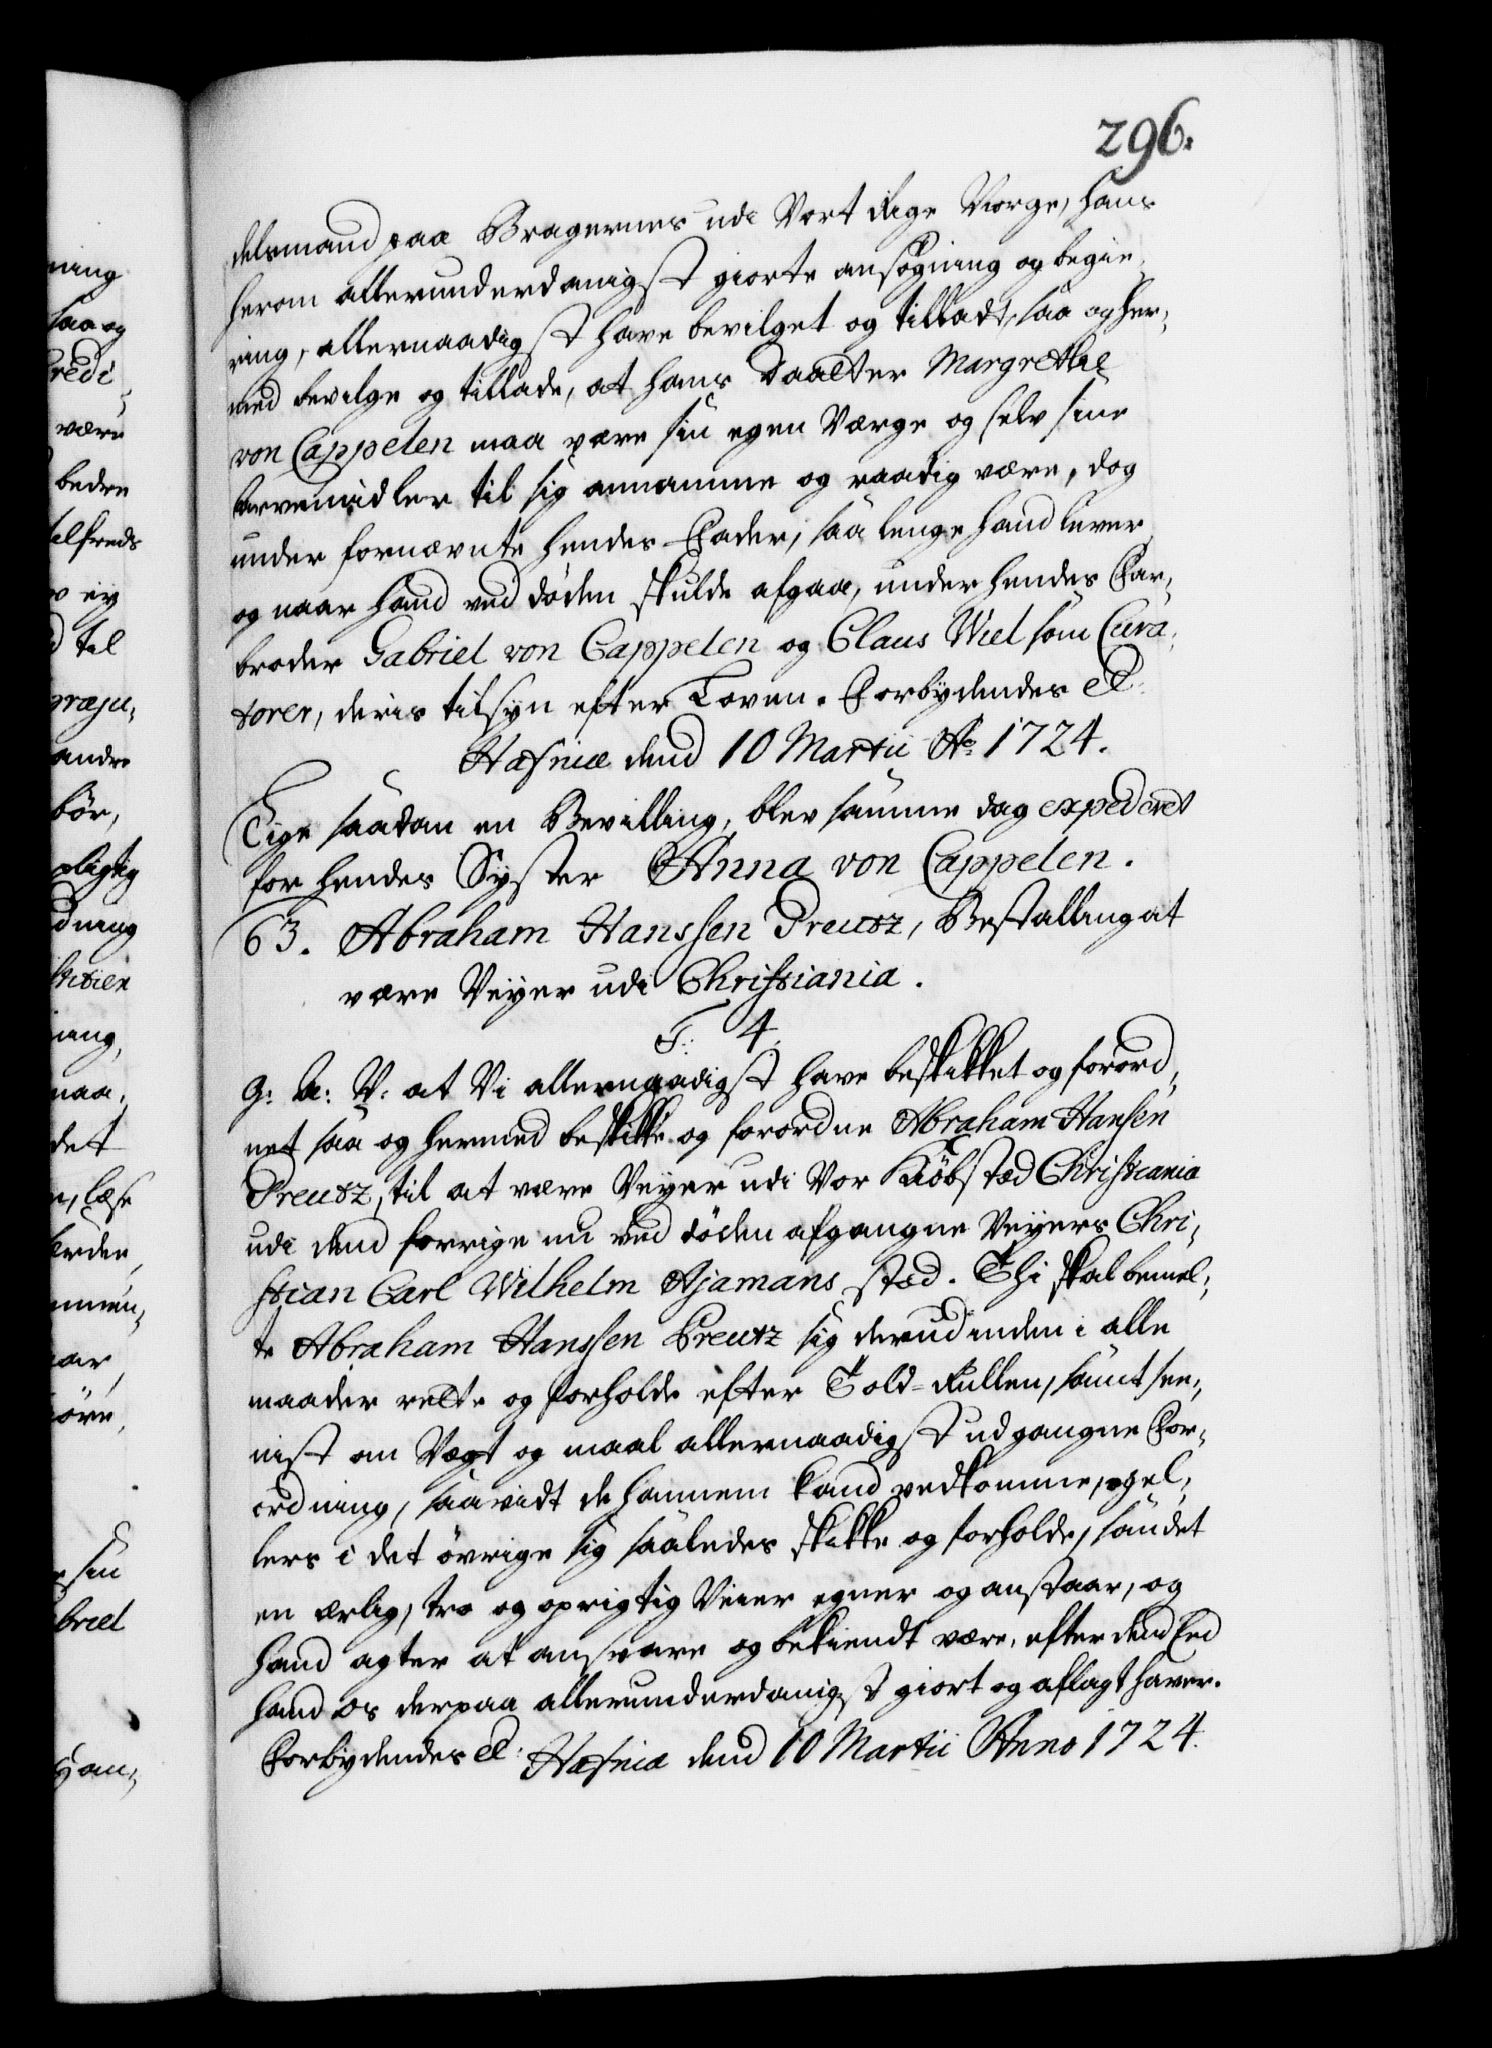 296.
delsmand paa Bragernes udi Vort Rige Norge, hans
herom allerunderdanigst giorte ansøgning og begie-
ring, allernaadigst have bevilget og tilladt, saa og her-
med bevilge og tillade, at hans Daatter Margrethe
von Cappelen maa være sin egen Værge og selv sine
arvemidler til sig annamme og raadig være, dog
under fornævnte hendes Fader, saa lenge hand lever
og naar hand ved døden skulde afgaa, under hendes Far-
broder Gabriel von Cappelen og Claus Wiel som Cura-
torer, deris tilsyn efter Loven. Forbydendes &c:
Hafniæ dend 10 Martii Ao 1724.
Lige saadan en Bevilling, blev samme dag expederet
for hendes Syster Anna von Cappelen.
63. Abraham Hanssen Preutz, Bestalling at
være Veyer udi Christiania.
F: 4.
G: A: V: at Vi allernaadigst have beskikket og forord-
net saa og hermed beskikke og forordne Abraham Hansen
Preutz, til at være Veyer udi Vor Kiöbsted Christiania
udi dend forrige nu ved døden afgangne Veyers Chri-
stian Carl Wilhelm Ajamans sted. Thi skal bemel-
te Abraham Hanssen Preutz sig derudinden i alle
maader rette og forholde efter Told-Rullen, samt see-
nist om Vægt og maal allernaadigst udgangne For-
ordning, saavidt de hannem kand vedkomme, og el-
lers i det övrige sig saaledes skikke og forholde, som det
en ærlig, tro og oprigtig Veier egner og anstaar, og
hand agter at ansvare og bekiendt være, efter dend Eed
hand os derpaa allerunderdanigst giort og aflagt haver.
Forbydendes &c: Hafniæ dend 10 Martii Anno 1724.